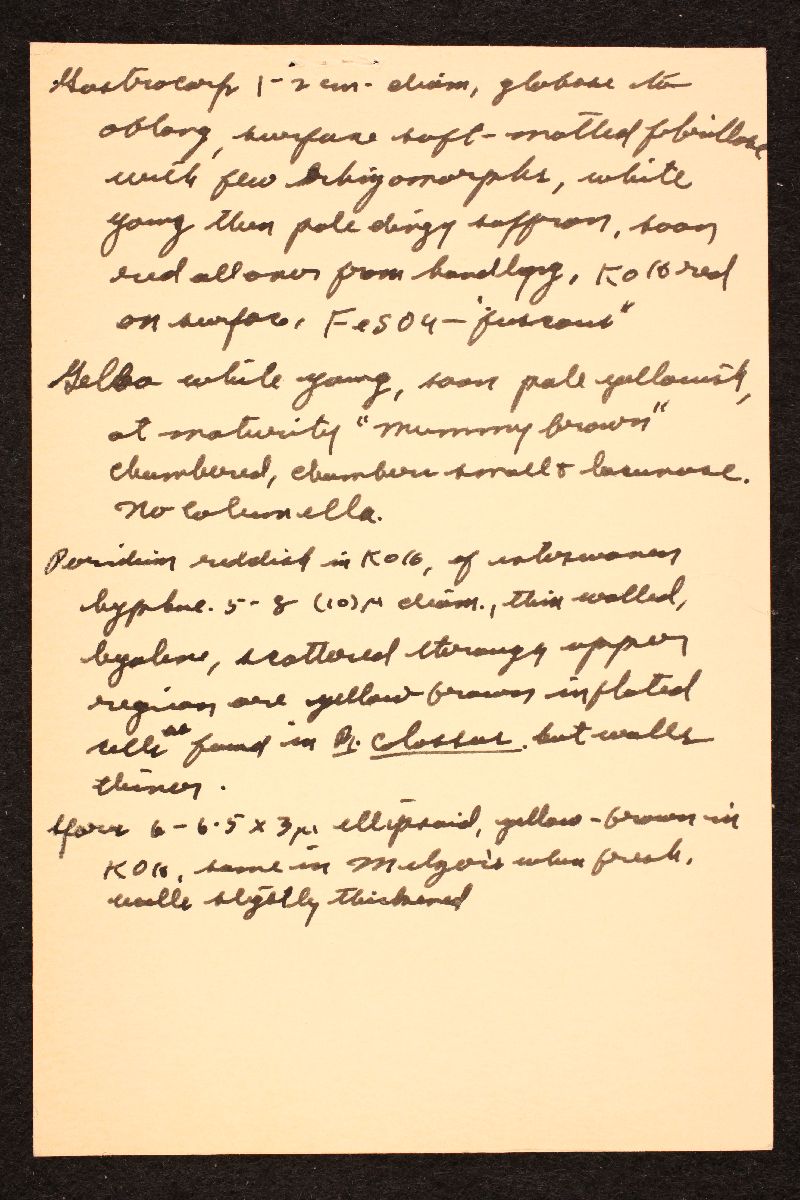 Gastrocarp 1-2 cm. diam, globose to
oblong, surface soft-matted fibrillose
with few rhizomorphs, white
young then pale dingy saffron, soon
red all over from handling, KOH red
on surface, FeSO4 - "fuscous"
Gleba white young, soon pale yellowish,
at maturity "mummy brown"
chambered, chambers small & lacunose.
No columella.
Peridium reddish in KOH, of interwoven
hyphae. 5-8 (10)μ diam., thin walled,
hyaline, scattered through upper
region are yellow brown inflated
cells as found in R. colossus, but walls
thiner.
Spores 6-6.5 x 3μ ellipsoid, yellow-brown in
KOH, same in Melzer's when fresh,
walls slightly thickened